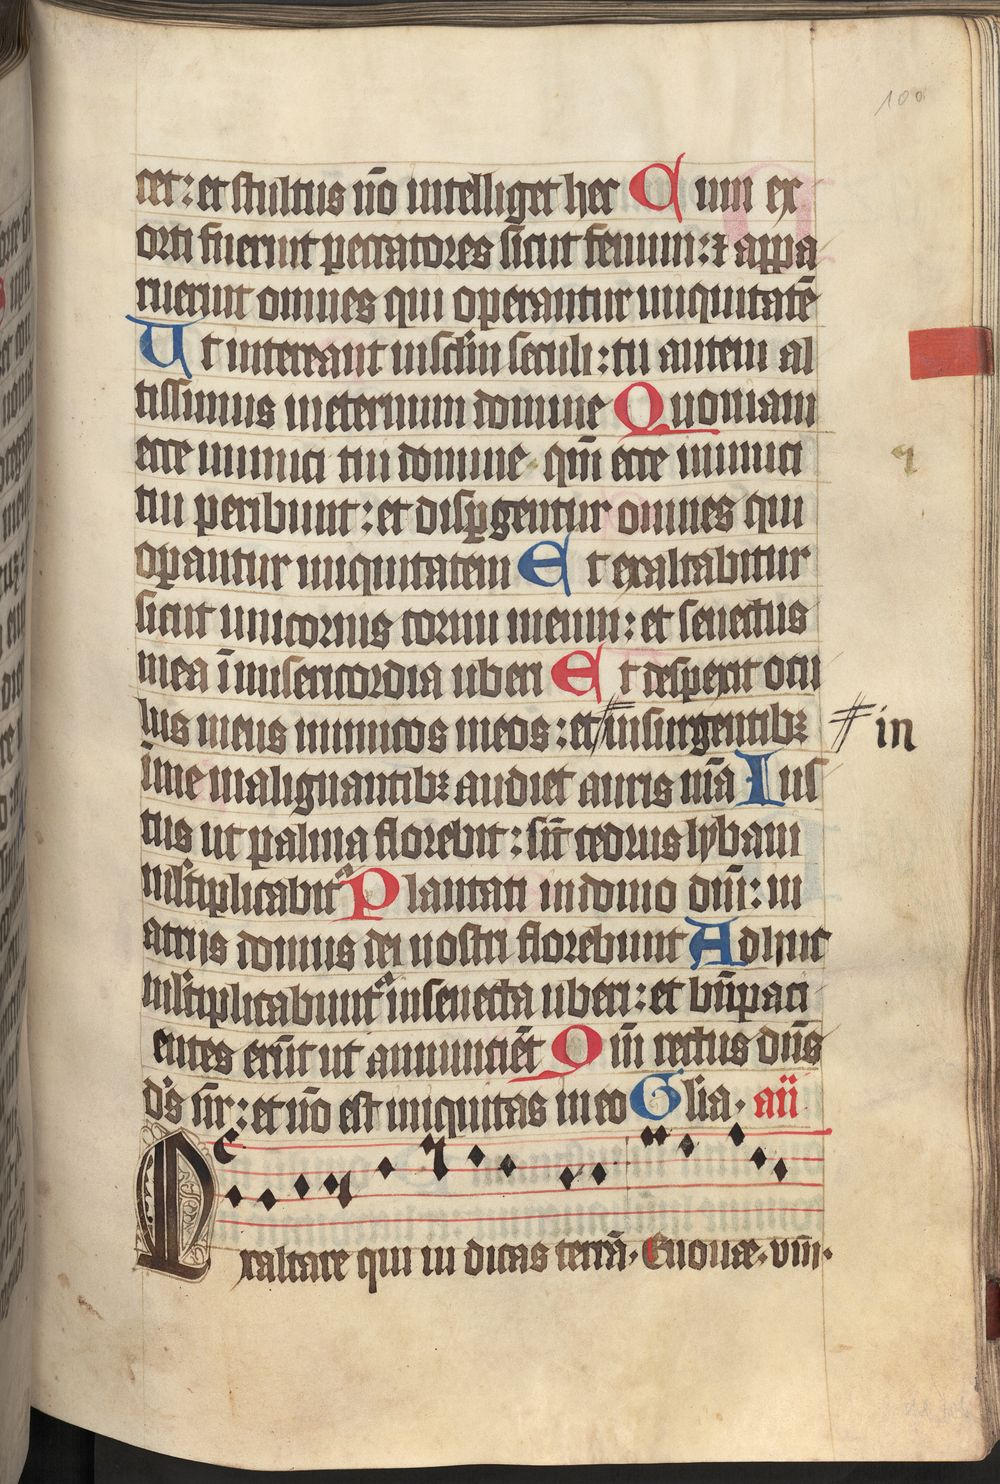 100
cet : et stultus nō intelliget hec Cum ex
orti fuerint peccatores sicut fenum : ⁊ appa
ruerint omnes qui operantur iniquitatē
Ut intereant insclm̄ seculi : tu autem al
tissimus ineternum domine Quoniam
ecce inimici tui domine qm̄ ecce inimici
tui peribunt : et disꝑgentur omnes qui
oꝑantur iniquitatem Et exaltabitur
sicut unicornis cornu meum : et senectus
mea ī misericordia uberi Et despexit ocu
lus meus inimicos meos : et # insurgentibꝫ # in
ī me malignantibꝫ audiet auris m̄a Ius
tus ut palma florebit : sic̄ cedrus lybani
mĺtiplicabit᷑ Plantati indomo dn̄i : in
atriis domus dei nostri florebunt Adhuc
mĺtiplicabunt᷑ insenecta uberi : et bn̄paci
entes erūt ut annuncient Qm̄ rectus dn̄s
ds̄ nr̄ : et nō est iniquitas in eo Glia . an̄
Exaltare qui iu dicas terrā . Euouae . viii .